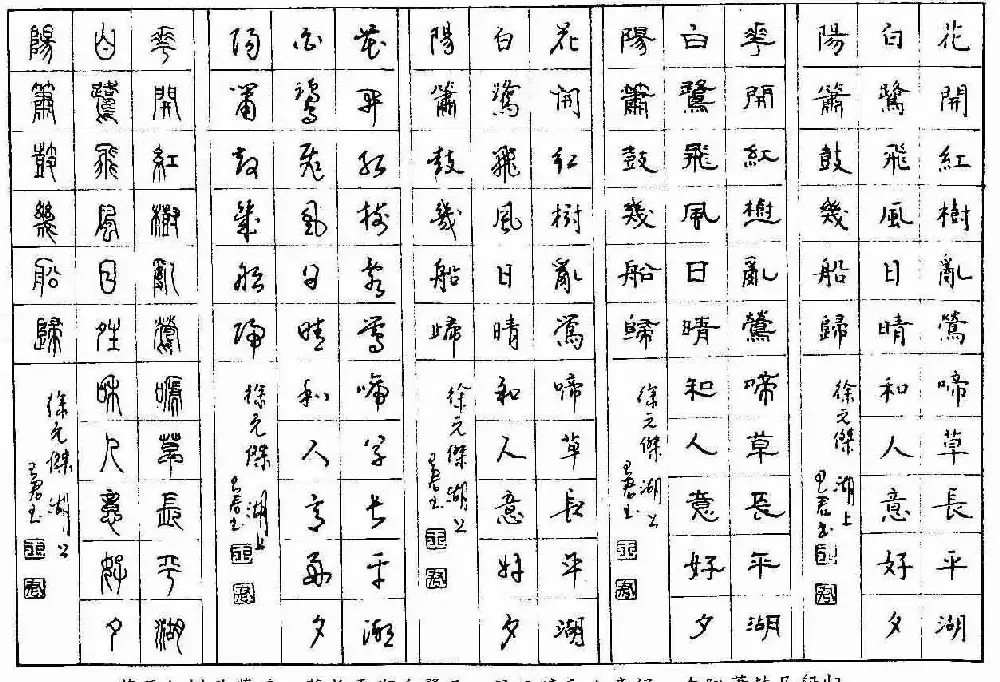 花開紅樹亂鶯啼草長平湖
白鷺飛風日晴和人意好夕
陽簫鼓幾船歸
徐元傑
湖上
華開紅樹亂鶯啼草長平湖
白鷺飛風日晴和人意好夕
陽簫鼓幾船歸
徐元傑
湖上
花開紅樹亂鶯啼草長平湖
白鷺飛風日晴和人意好夕
陽簫鼓幾船歸
徐元傑
湖上
花開紅樹亂鶯啼草長平湖
白鷺飛風日晴和人意好夕
陽簫鼓幾船歸
徐元傑
湖上
華開紅樹亂鶯啼草長平湖
白鷺飛風日姓和人意好夕
陽簫鼓幾船歸
徐元傑
湖上